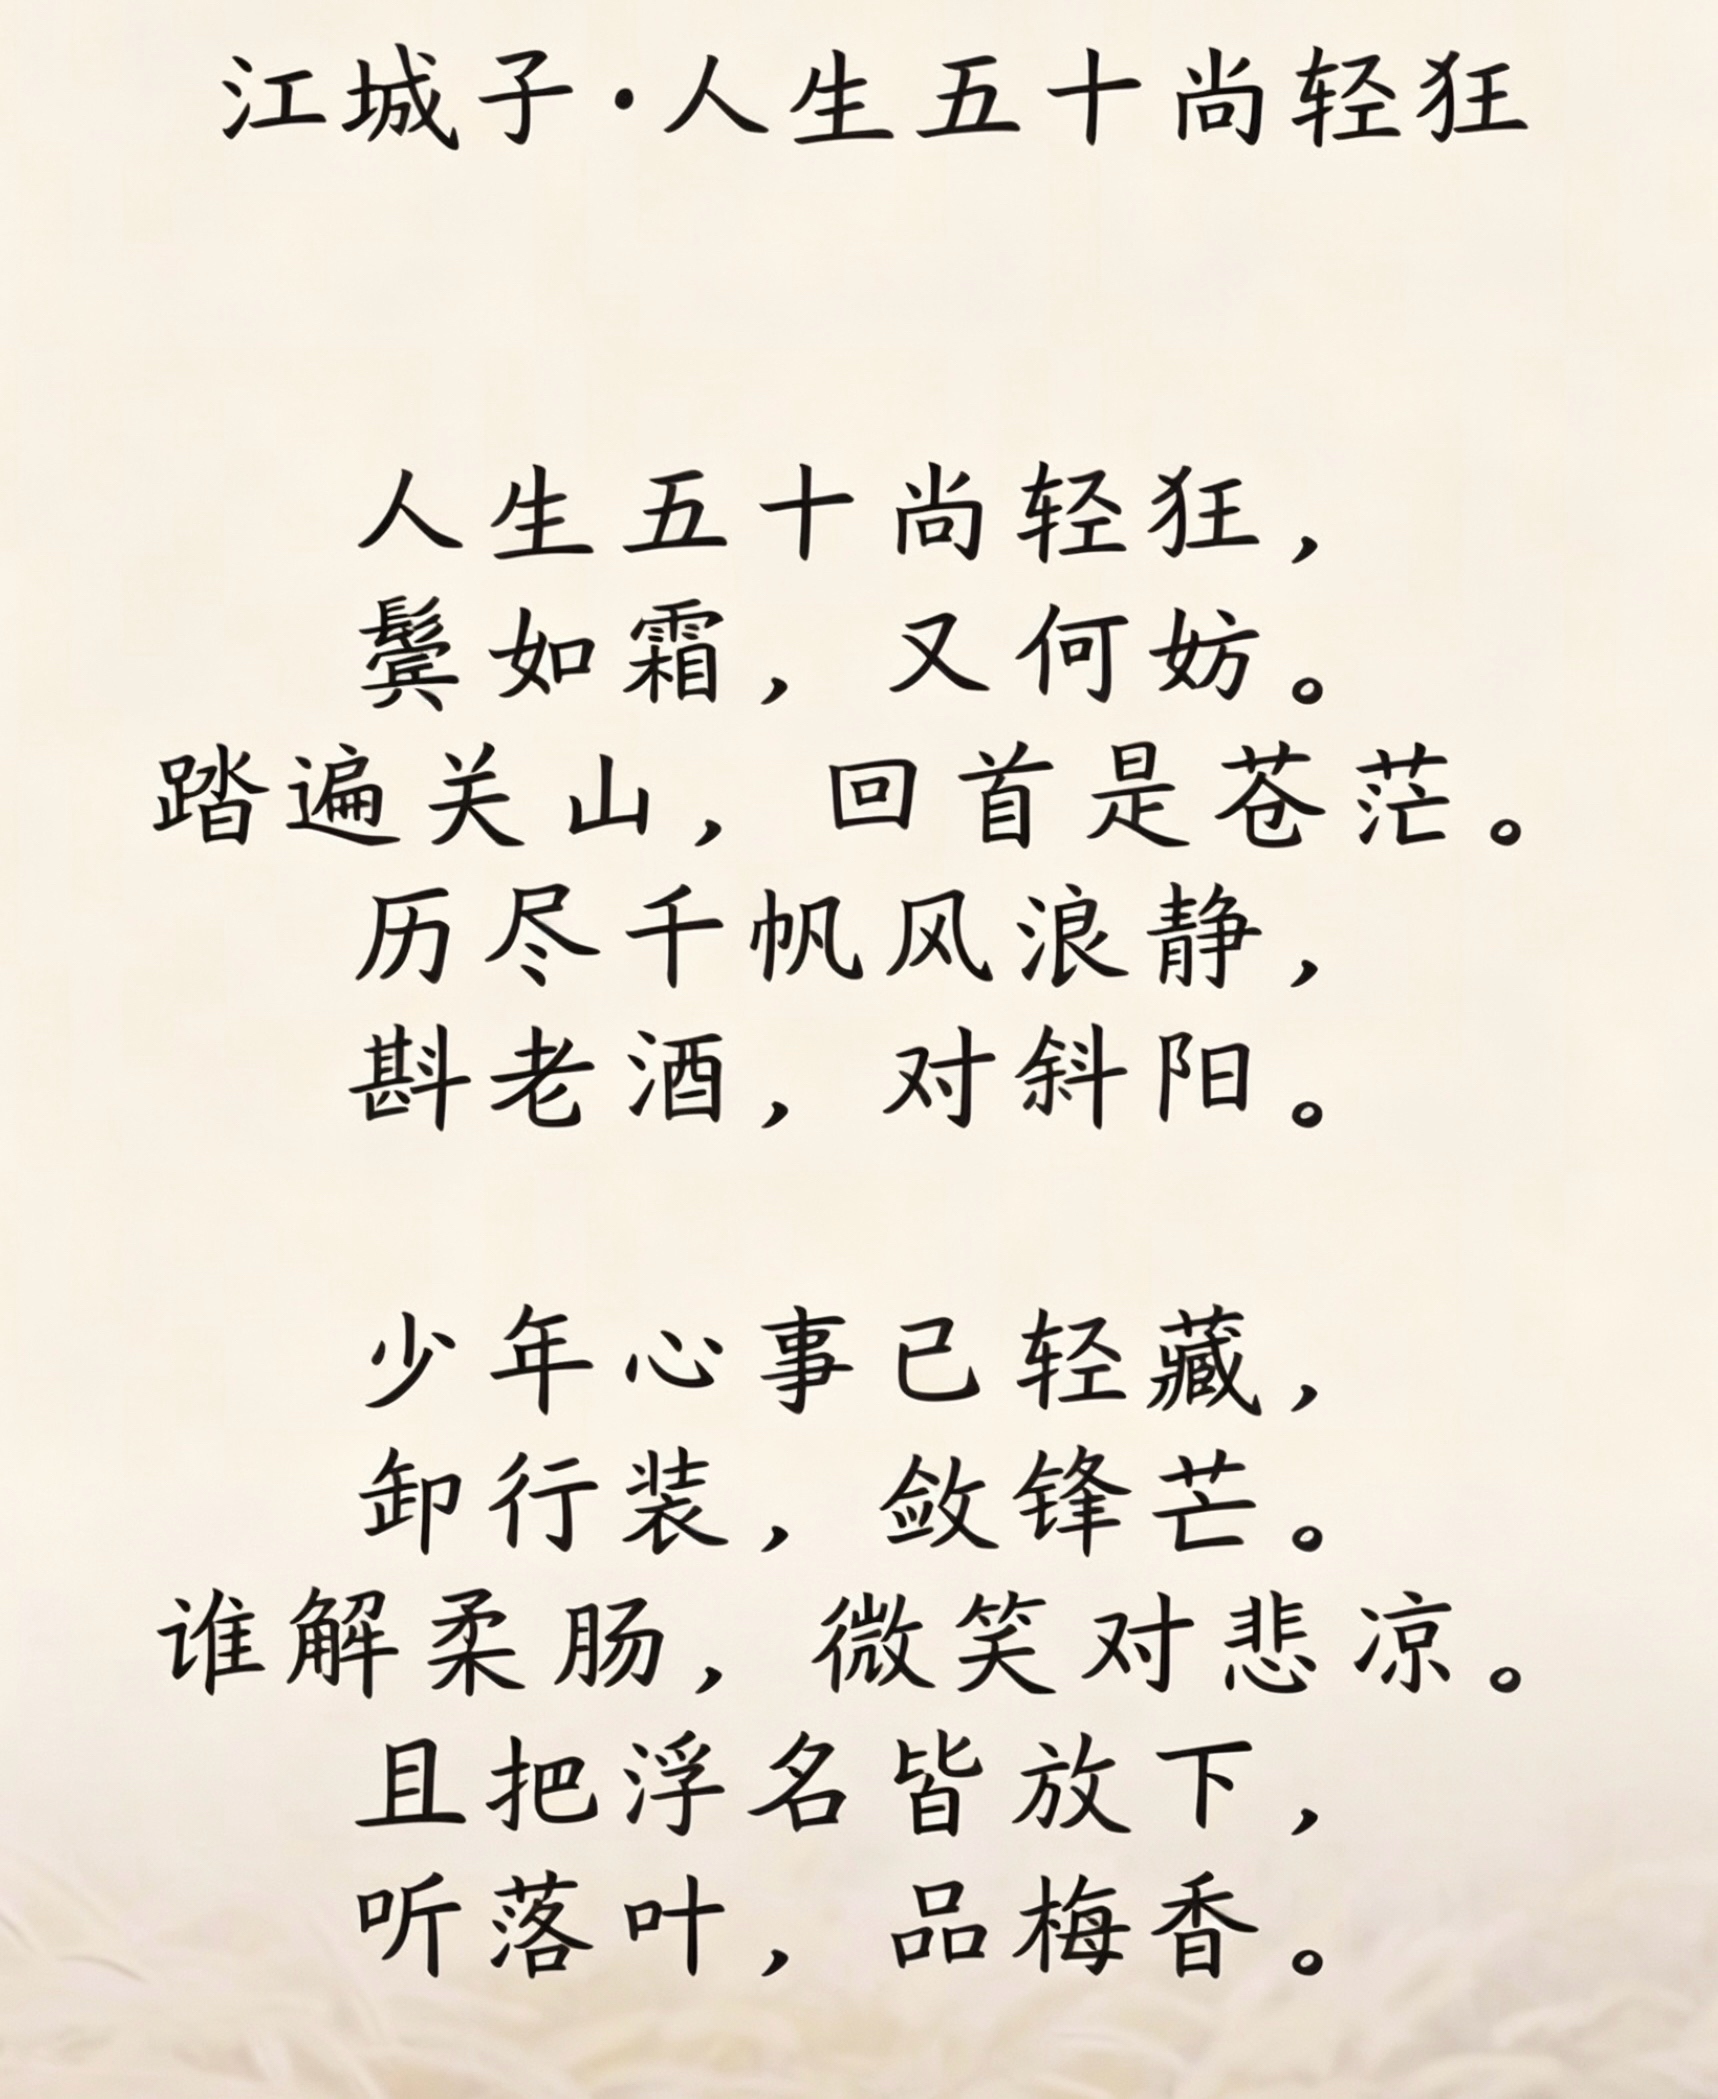 江城子·人生五十尚轻狂
人生五十尚轻狂，
鬓如霜，又何妨。
踏遍关山，回首是苍茫。
历尽千帆风浪静，
斟老酒，对斜阳。
少年心事已轻藏，
卸行装，敛锋芒。
谁解柔肠，微笑对悲凉。
且把浮名皆放下，
听落叶，品梅香。